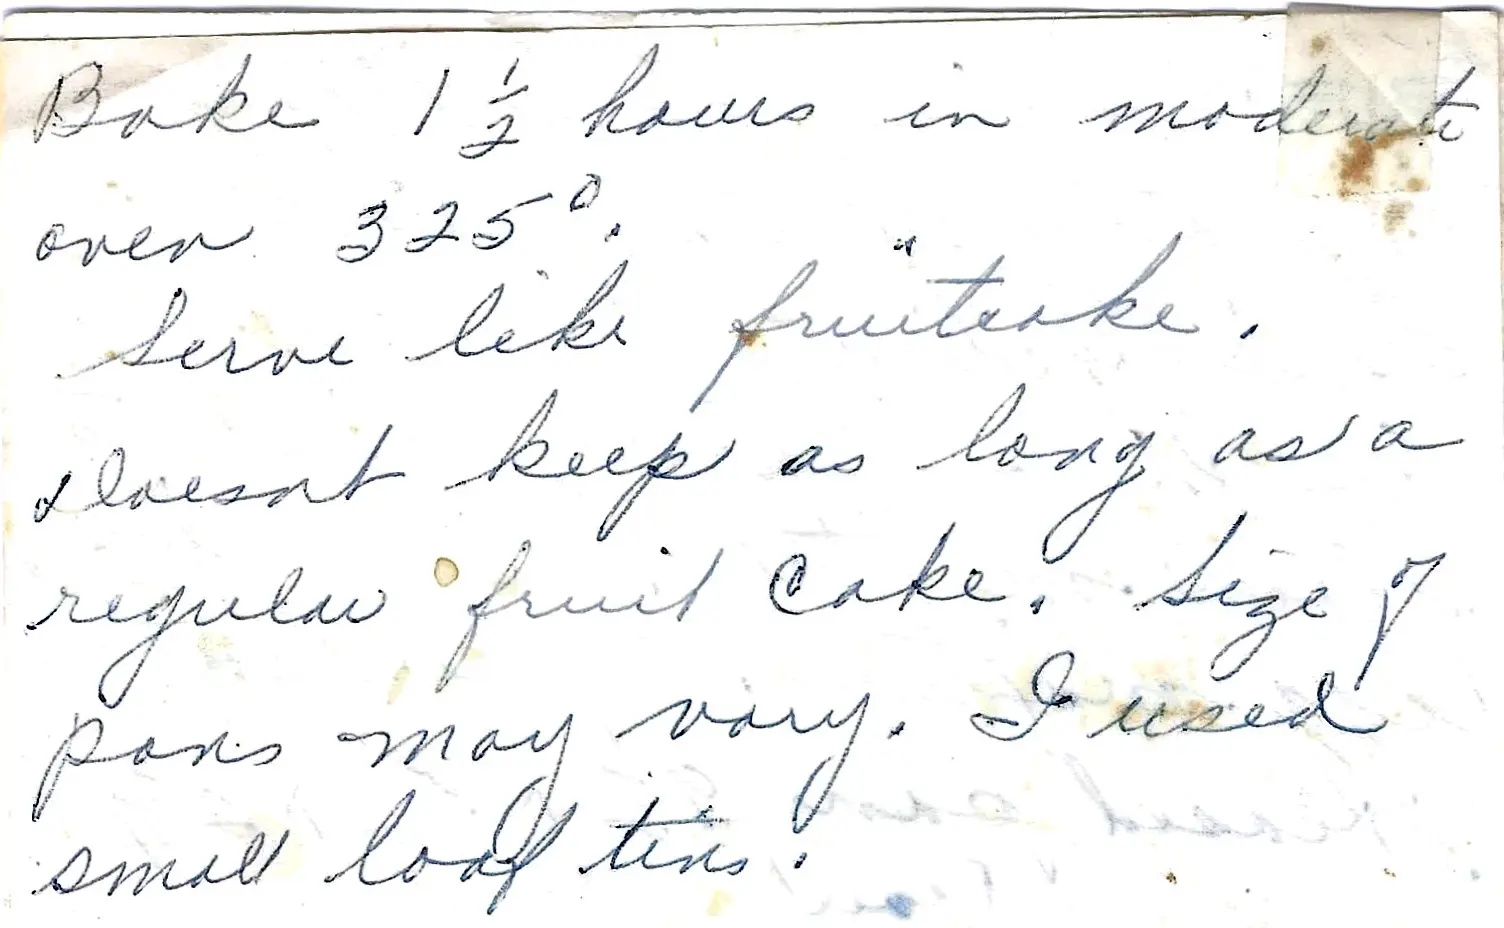 Bake 1 1/2 hours in moderate
oven 325°.
Serve like fruitcake.
doesnt keep as long as a
regular fruit cake. Size of
pans may vary. I used
small loaf tins.